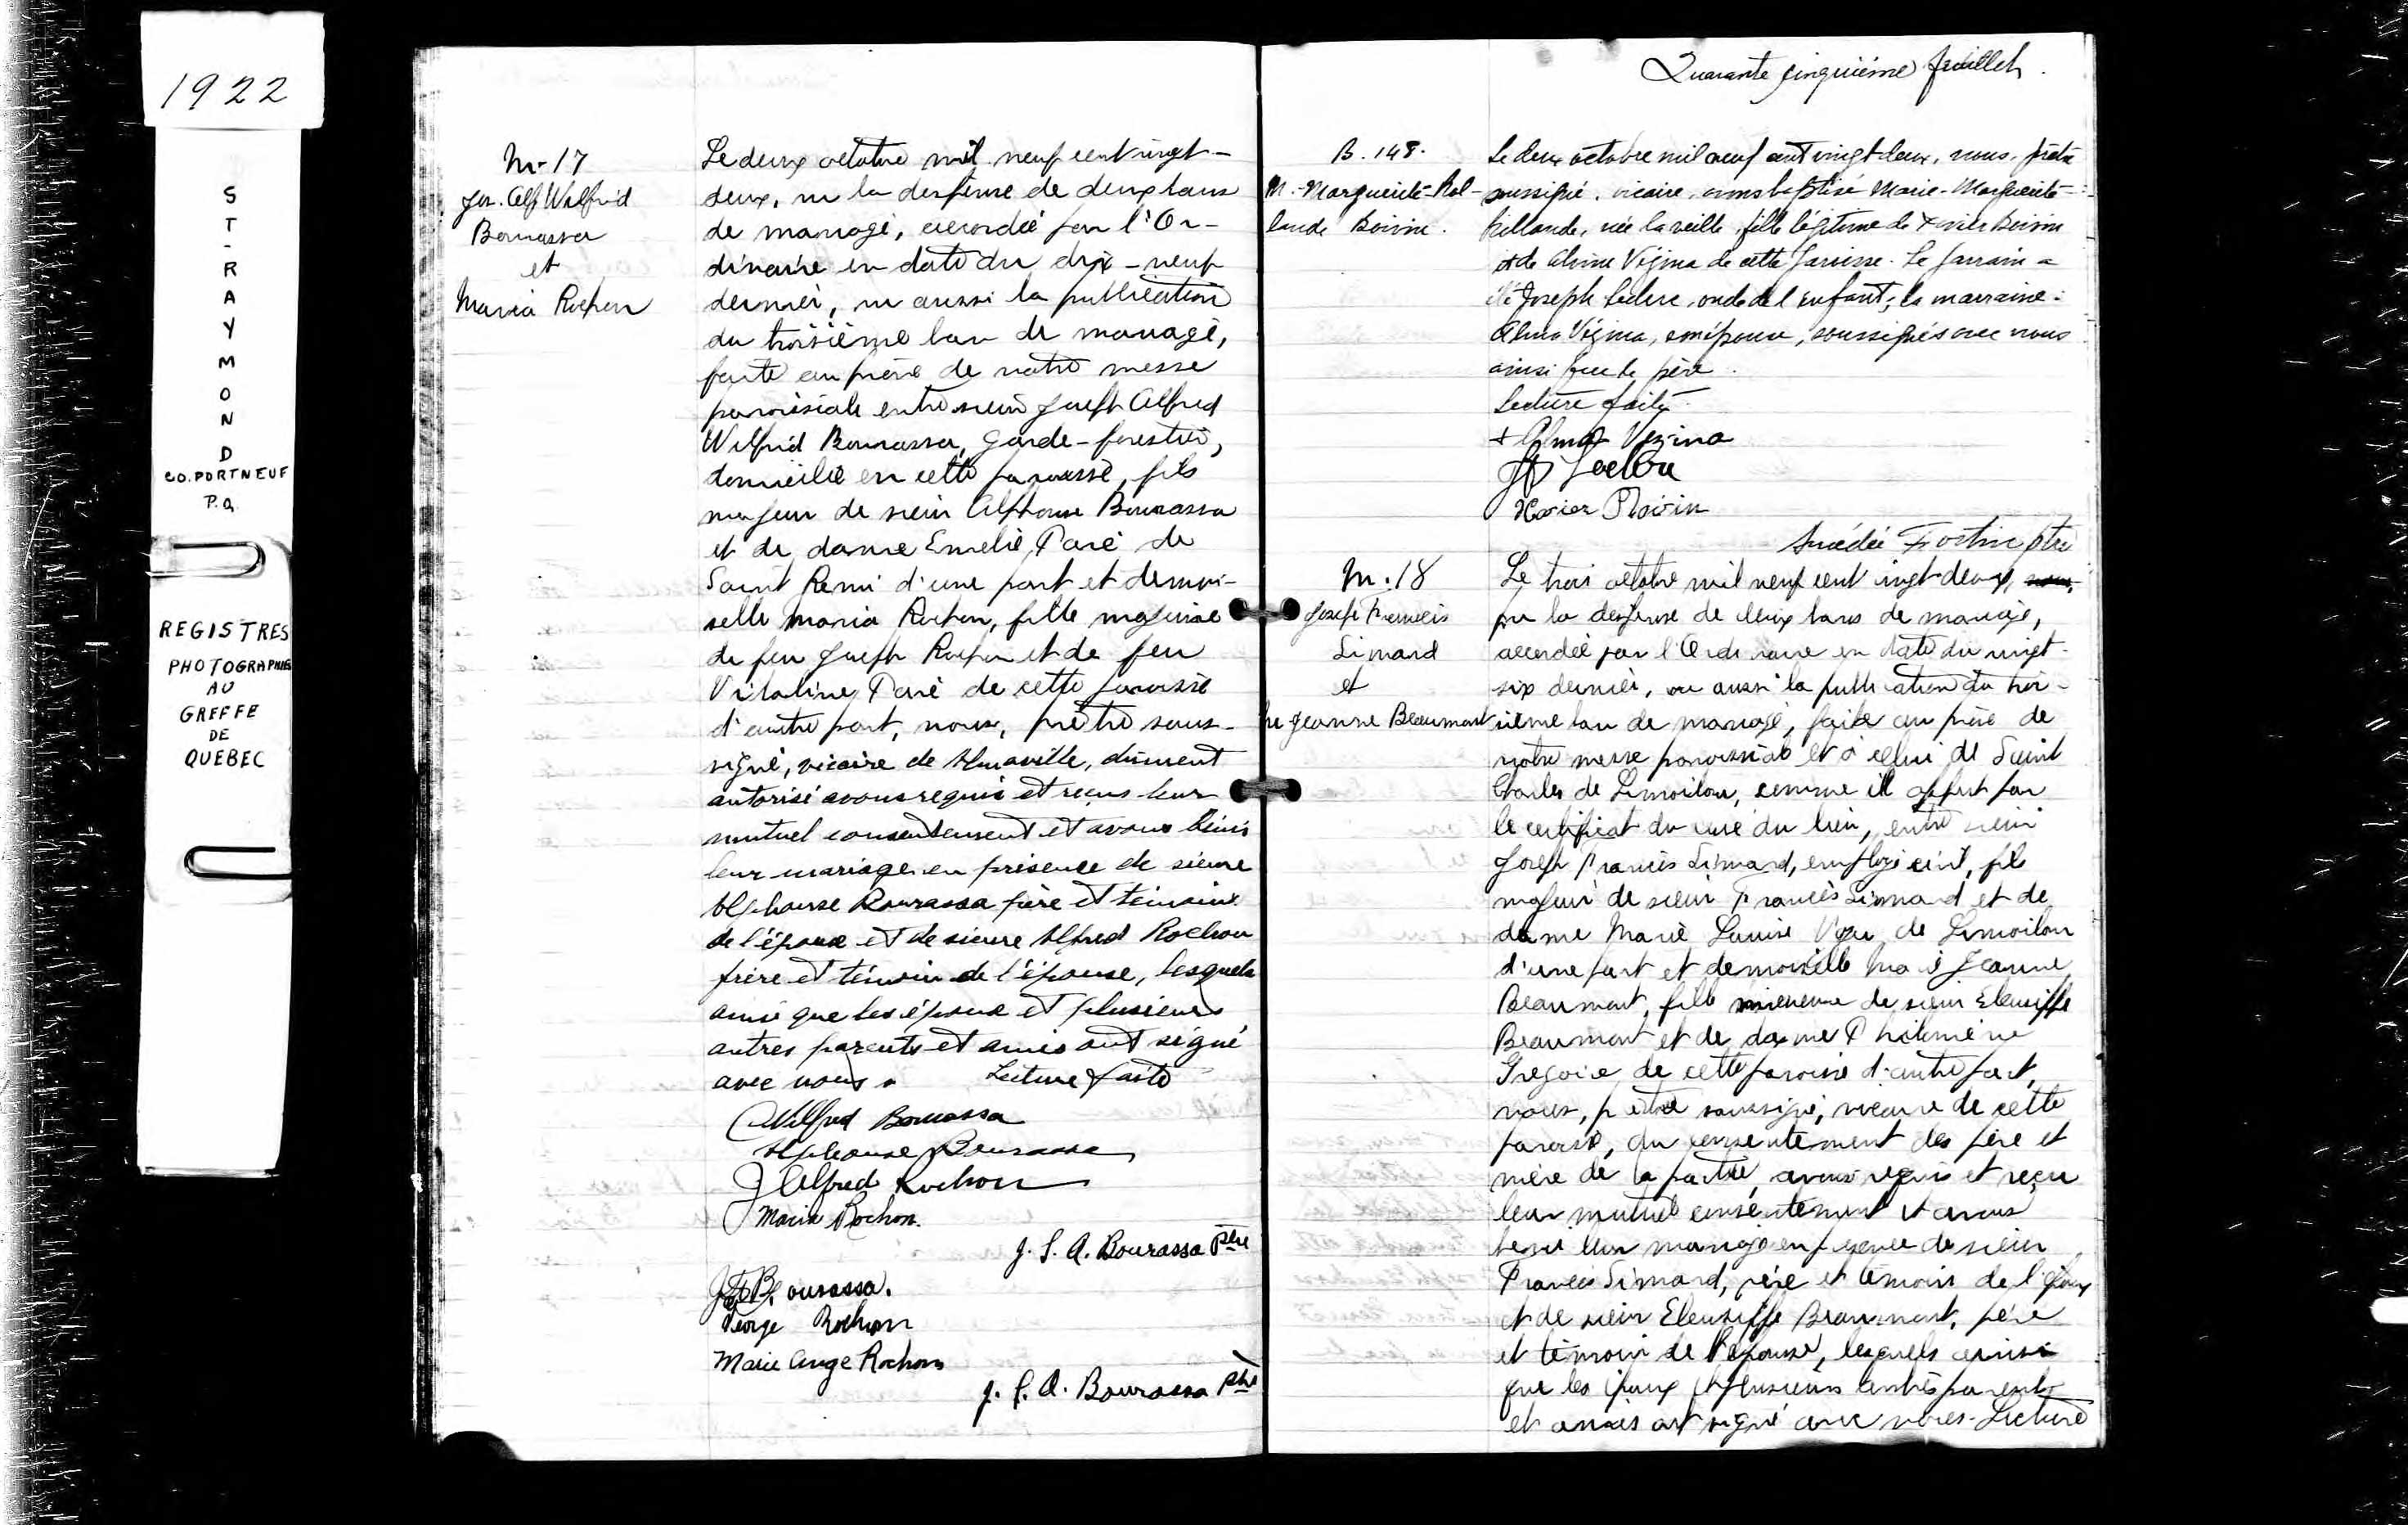 1922
ST-RAYMOND
CO. PORTNEUF
P.Q.
REGISTRES
PHOTOGRAPHIES
AU
GREFFE
DE
QUEBEC
M-17
Jos. Alf Wilfrid
Bourassa
et
Maria Rochon
Le deux octobre mil neuf cent vingt-
deux, vu la dispense de deux bans
de mariage, accordée par l'Or-
dinaire en date du dix-neuf
dernier, vu aussi la publication
du troisième ban de mariage,
faite au prône de notre messe
paroissiale entre sieur Joseph Alfred
Wilfrid Bourassa, garde-forestier,
domicilié en cette paroisse, fils
majeur de sieur Alphonse Bourassa
et de dame Emelie Paré de
Saint Remi d'une part et demoi-
selle Maria Rochon, fille majeure
de feu Joseph Rochon et de feu
Vitaline Paré de cette paroisse
d'autre part, nous, prêtre sous-
signé, vicaire de, dûment
autorisé avons requis et reçus leur
mutuel consentement et avons béni
leur mariage en présence de sieur
Alphonse Bourassa père et témoin
de l'époux et de sieur Alfred Rochon
frère et témoin de l'épouse, lesquels
ainsi que les époux et plusieurs
autres parents et amis ont signé
avec nous. Lecture faite
Wilfrid Bourassa
Alphonse Bourassa
J Alfred Rochon
Maria Rochon.
J. S. A. Bourassa Ptre
Bourassa.
George Rochon
Marie Ange Rochon
J. S. A. Bourassa Ptre
Quarante cinquième feuillet.
B. 148.
M.-Marguerite-Rol-
lande Boivin.
Le deux octobre mil neuf cent vingt deux, nous, prêtre
soussigné, vicaire, avons baptisé Marie-Marguerite-
Rollande, née la veille, fille légitime de Xavier Boivin
et de Vézina de cette paroisse. Le parrain a
été Joseph Leclerc, oncle de l'enfant; la marraine:
Alma Vézina, son épouse, soussignés avec nous
ainsi que le père.
Lecture faite.
+ Alma Vezina
Leclerc
Xavier Boivin
Amédée Fortin ptre
M. 18
Joseph Francis
Simard
et
Jeanne Beaumont
Le trois octobre mil neuf cent vingt-deux, nous,
vu la dispense de deux bans de mariage,
accordée par l'Ordinaire en date du vingt-
six dernier, vu aussi la publication du troi-
sième ban de mariage, faite au prône de
notre messe paroissiale et à celui de Saint
Charles de Limoilou, comme il appert par
le certificat du curé du lieu, entre sieur
Joseph Francis Simard, employé civil, fils
majeur de sieur Francis Simard et de
dame Marie Louise de Limoilou
d'une part et demoiselle Marie Jeanne
Beaumont, fille mineure de sieur Eleusippe
Beaumont et de dame Philomène
Gregoire de cette paroisse d'autre part,
nous, prêtre soussigné, vicaire de cette
paroisse, du consentement des père et
mère de la partie, avons requis et reçu
leur mutuel consentement et avons
béni leur mariage en présence de sieur
Francis Simard, père et témoin de l'époux
et de sieur Eleusippe Beaumont, père
et témoin de l'épouse, lesquels ainsi
que les époux et plusieurs autres parents
et amis ont signé avec nous. Lecture